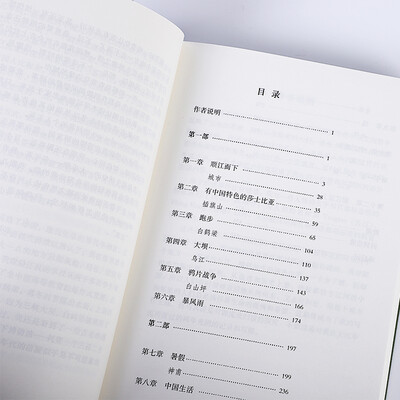 目录
作者说明 1
第一部 1
第一章 顺江而下 3
城市 28
第二章 有中国特色的莎士比亚 35
插旗山 59
第三章 跑步 65
白鹤梁 104
第四章 大坝 110
乌江 137
第五章 鸦片战争 143
白山坪 166
第六章 暴风雨 174
第二部 197
第七章 暑假 199
神甫 236
第八章 中国生活